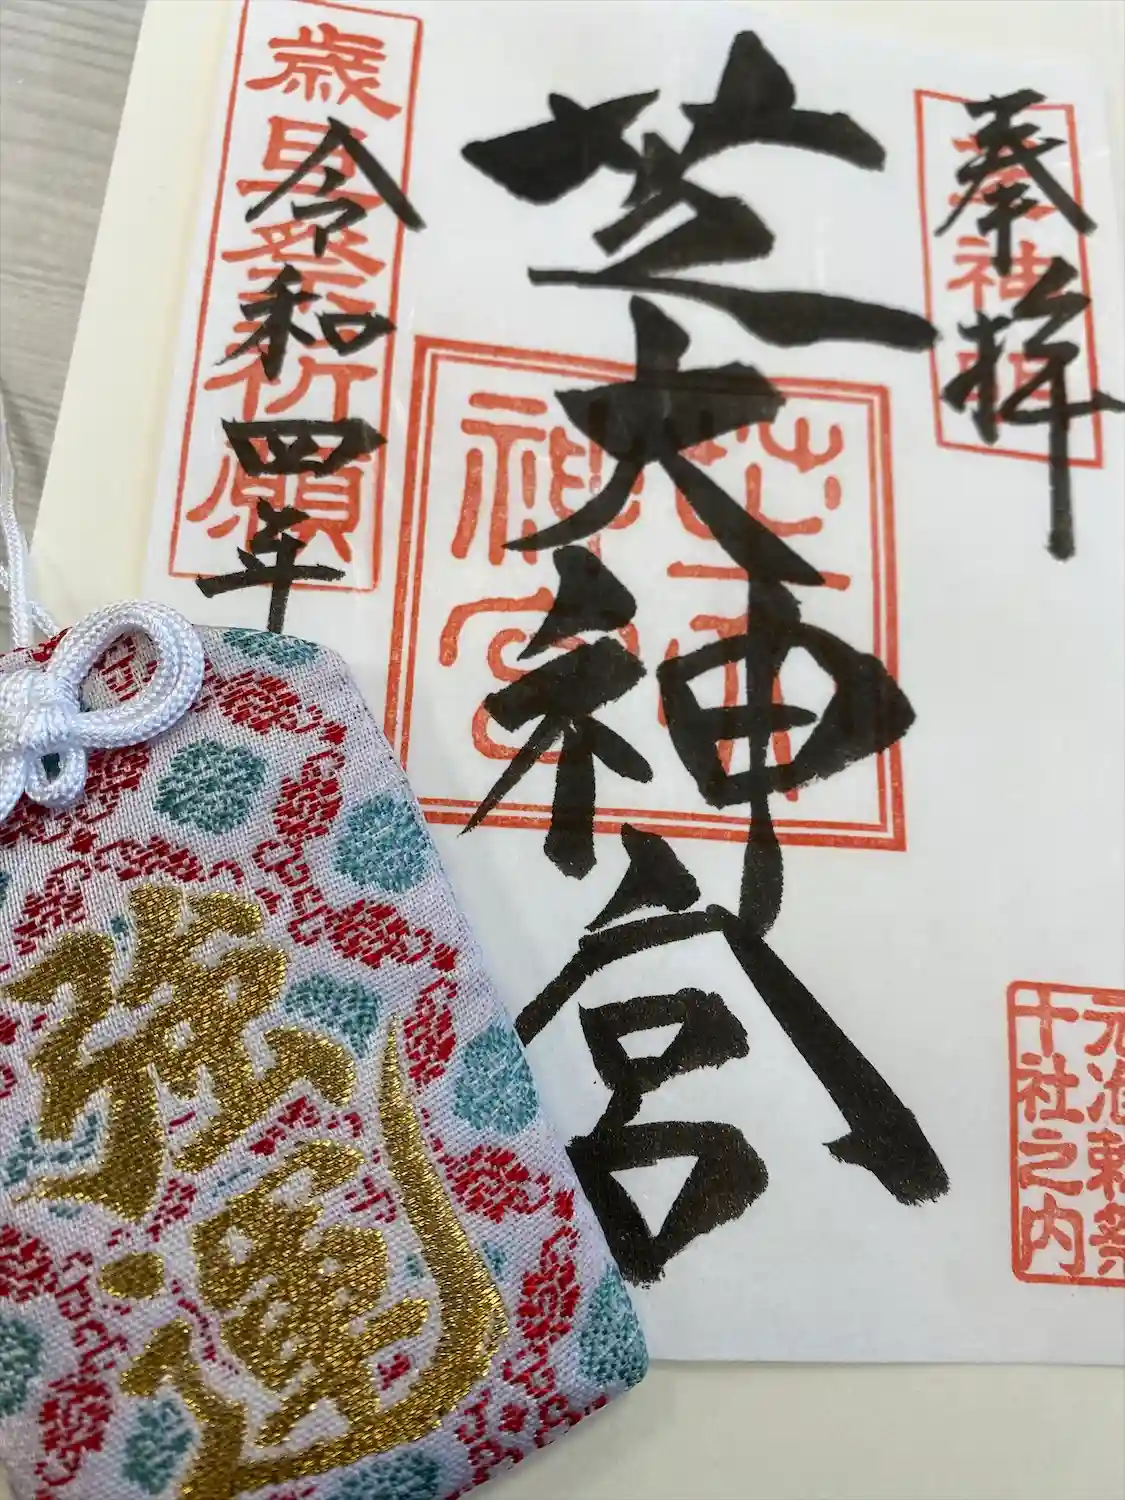 奉拝
芝大神宮
芝大
神宮
歳旦祭祈願
令和四年
元准勅祭
十社之内
強運